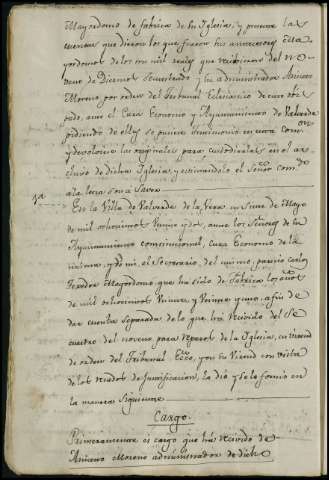 Mayordomo de fabrica de su Iglesia, y procure las
cuentas que dieron los que fueron sus anteceso
yordomos de los mil reales que recivieron del no
veno de Diezmos Secuestrado, y su administrador Aniceto
Moreno por orden del Tribunal Eclesiastico de este obis
pado, ante el Cura Economo y Ayuntamiento de Valverde
pidiendo de ellas se ponga testimonio en
y devolverse las originales para custodiarlas en el ar
chivo de dicha Iglesia, y estimandolo el Señor
a la letra son a saver
En la Villa de Valverde de la Vera en siete de Mayo
de mil ochocientos veinte y dos, ante los Señores de su
Ayuntamiento constitucional, cura Economo de la
misma, y de mi el Secretario del mismo, parecio Carlos
Teodoro Mayordomo que ha sido de Fabrica los años
de mil ochocientos veinte, y veinte y uno, a fin de
dar cuenta separada de lo que ha recivido del Se
cuestro del noveno para reparos de la Iglesia, en virtud
de orden del Tribunal Ecco, y en su virtud con vista
de los recados de Justificacion, la dio y se le formó en
la manera siguiente
Cargo
Primeramente es cargo que ha recivido de
Aniceto Moreno administrador de dicho